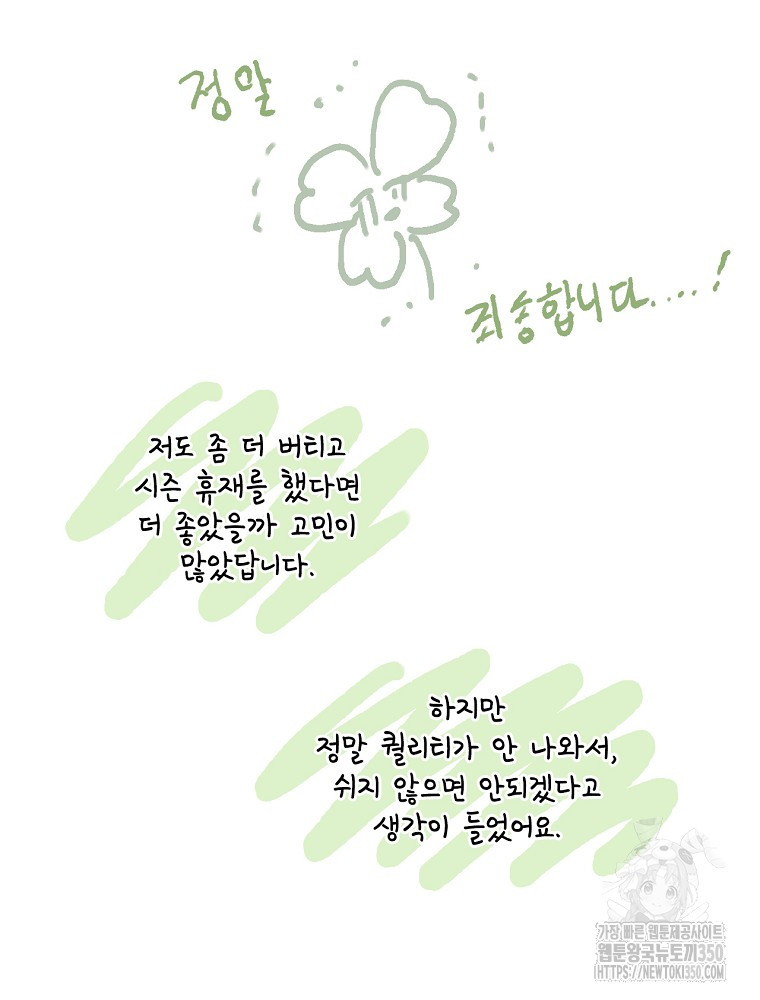 정말
죄송합니다....!
저도 좀 더 버티고
시즌 휴재를 했다면
더 좋았을까 고민이
많았답니다.
하지만
정말 퀄리티가 안 나와서,
쉬지 않으면 안되겠다고
생각이 들었어요.
가장 빠른 웹툰제공사이트
웹툰왕국뉴토끼350
HTTPS://NEWTOKI350.COM